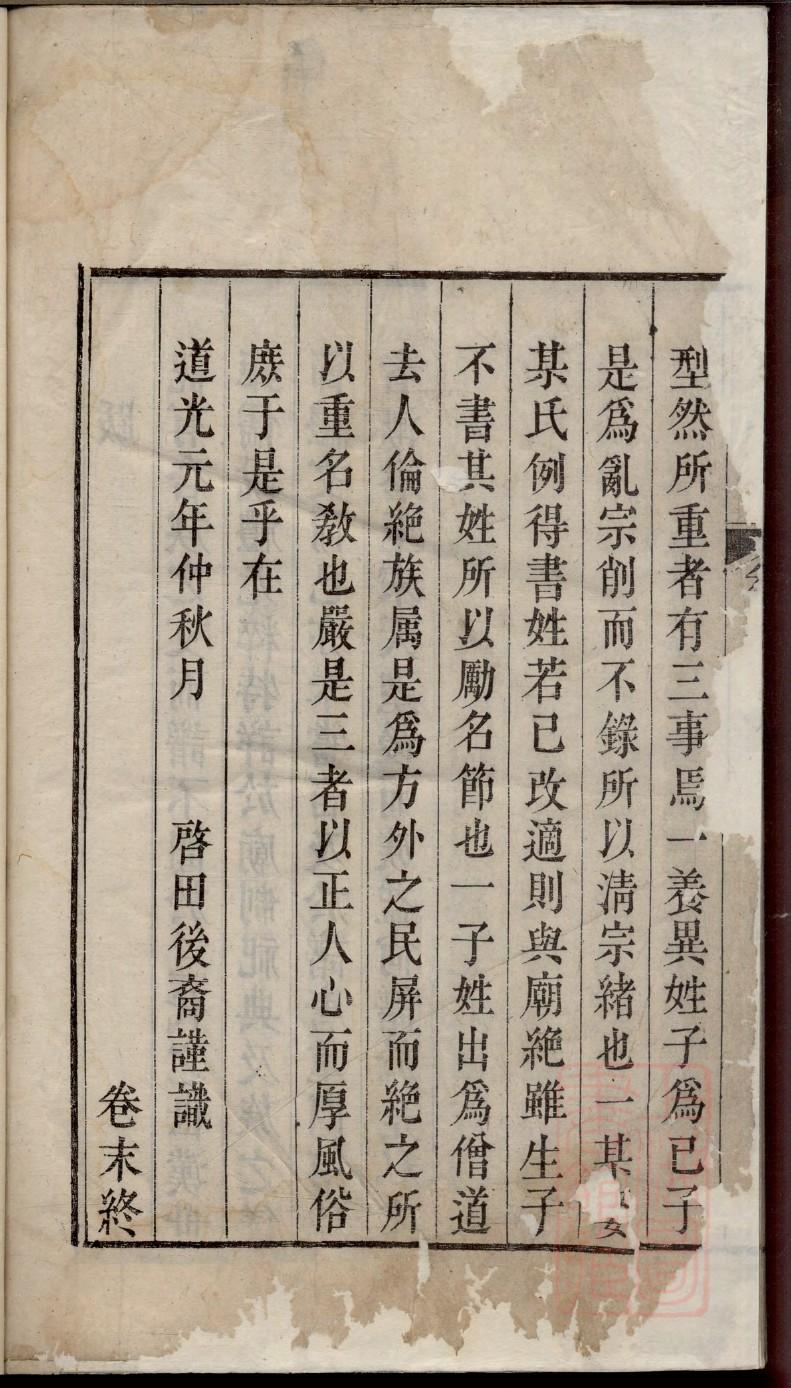 型然所重者有三事焉一養異姓子爲已子
是爲亂宗削而不錄所以淸宗緖也一某女
某氏例得書姓若已改適則與廟絶雖生子
不書其姓所以勵名節也一子姓出爲僧道
去人倫絶族属是爲方外之民屏而絶之所
以重名敎也嚴是三者以正人心而厚風俗
庶于是乎在
道光元年仲秋月 啓田後裔謹識
卷末終